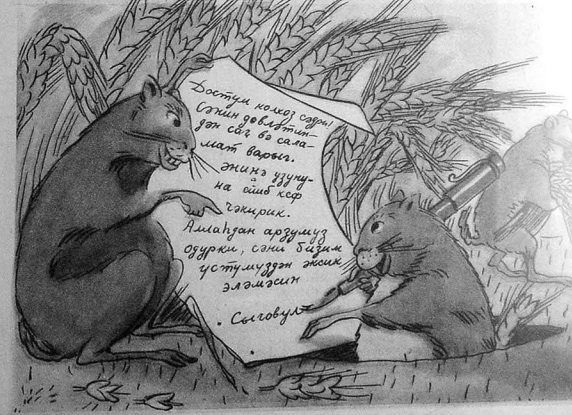 Достум колхоз сәдри!
Сәнин дөвләтин-
дән сағ вә сала-
мат варыг.
әнинә узуну-
на ешиб кеф
чәкирик.
Аллаһдан арзумуз
одурки, сәни бизим
үстүмүздән әксик
әләмәсин
Сыговул